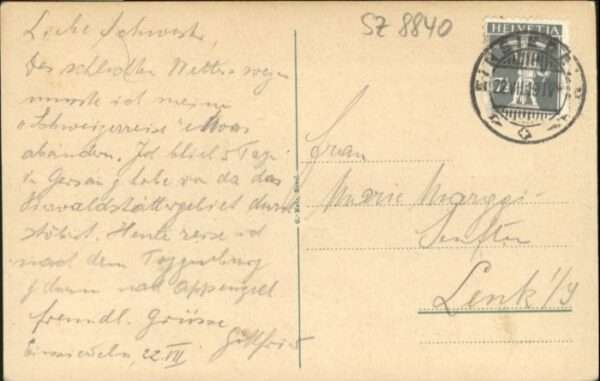 Liebe Schwester,
Des schlechten Wetters wegen
musste ich meine
"Schweizerreise" etwas
abändern. Ich blieb 5 Tage
in Gersau & habe von da das
Vierwaldstättergebiet durch-
stöbert. Heute reise ich
nach dem Toggenburg
& dann nach Appenzell
freundl. Grüsse
Einsiedeln, 22. VII. Gottfried
SZ 8840
HELVETIA
EINSIEDELN
22. VII.
Frau
Marie Marggi-
Lenk i/S